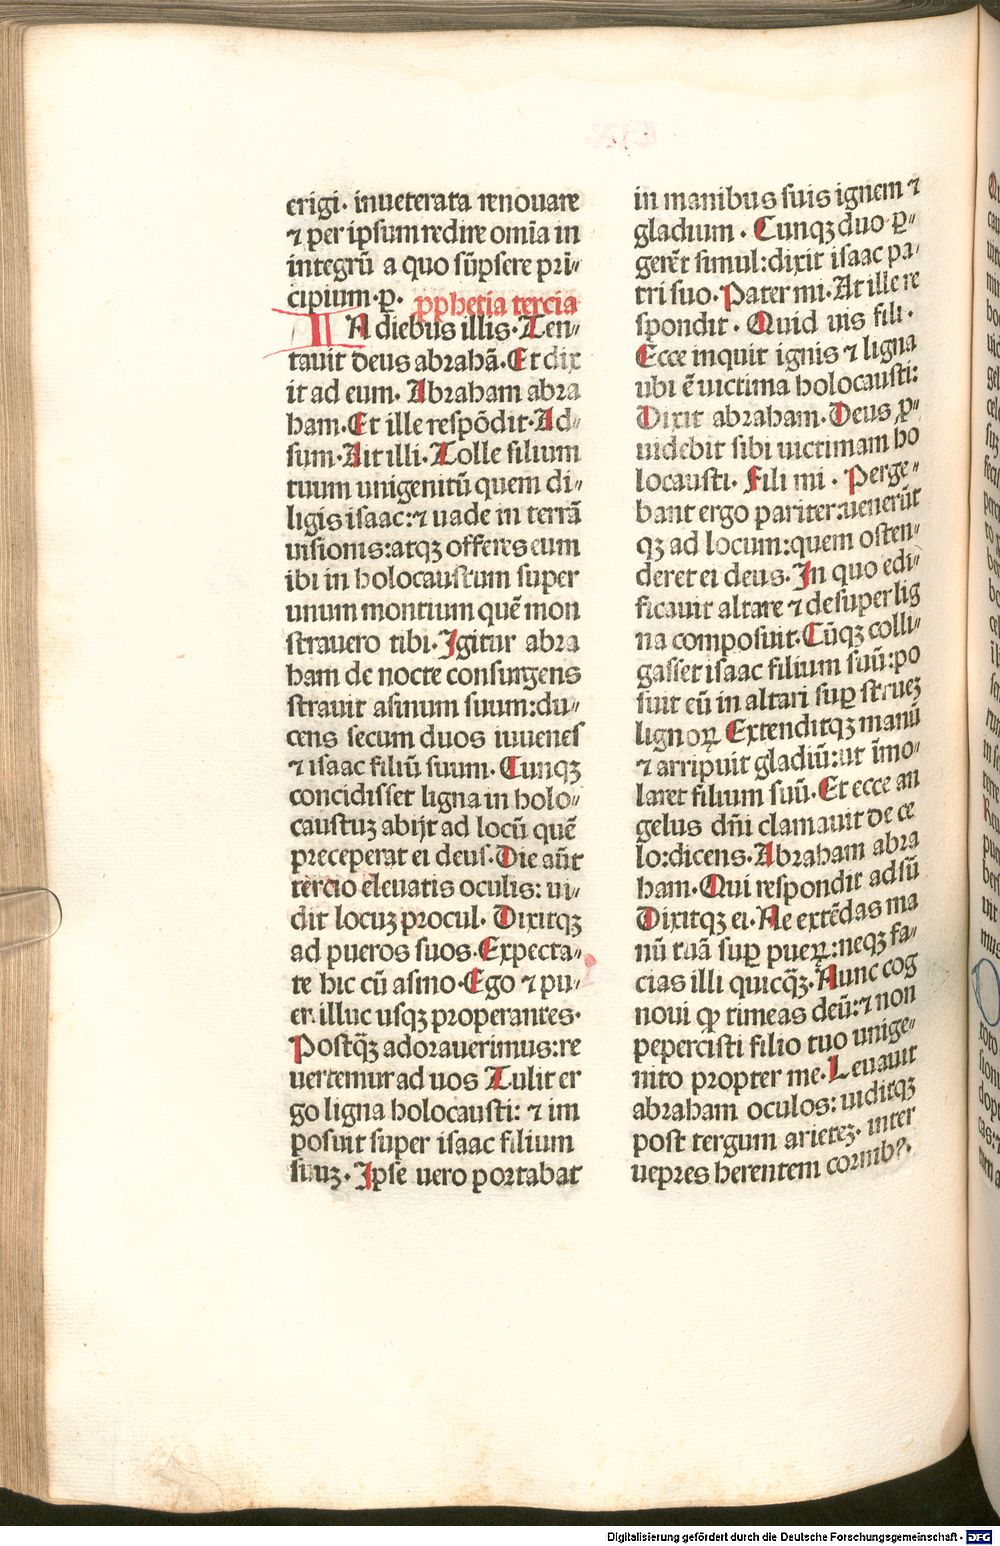 erigi· inueterata renouare
⁊ per ipsum redire om̄ia in
integrū a quo sūpsere prī⸗
cipium·p̲. pphetia tercia
IN diebus illis·Ten⸗
tauit deus abrahā.Et dix
it ad eum. Abraham abra
ham·Et ille respōdit·Ad⸗
sum·Ait illi·Tolle filium
tuum unigenitū quem di⸗
ligis isaac:⁊ uade in terrā
uisionis:atqꝫ offeres eum
ibi in holocaustum super
unum montium quē mon
strauero tibi·Igitur abra
ham de nocte consurgens
strauit asinum suum:du⸗
cens secum duos iuuenes
⁊ isaac filiū suum. Cunqꝫ
concidisset ligna in holo⸗
caustuꝫ abijt ad locū quē
preceperat ei deus·Die aūt
tercio eleuatis oculis: ui⸗
dit locuꝫ procul. Dixitqꝫ
ad pueros suos·Expecta⸗
te hic cū asino·Ego ⁊ pu⸗
er illuc usqꝫ properantes·
Postq̄ꝫ adorauerimus:re
uertemur ad uos Tulit er
go ligna holocausti: ⁊ im
posuit super isaac filium
suuꝫ· Ipse uero portabat
in manibus suis ignem ⁊
gladium · Cunqꝫ duo ꝑ⸗
gerēt simul:dixit isaac pa⸗
tri suo·Pater mi·At ille re
spondit · Quid uis fili ·
Ecce inquit ignis ⁊ ligna
ubi ē uictima holocausti:
Dixit abraham·Deus ꝓ⸗
uidebit sibi uictimam ho
locausti· Fili mi · Perge⸗
bant ergo pariter:uenerūt
qꝫ ad locum:quem osten⸗
deret ei deus·In quo edi⸗
ficauit altare ⁊ desuper lig
na composuit·Cūqꝫ colli⸗
gasset isaac filium suū:po
suit eū in altari suꝑ strueꝫ
lignoꝝ Extenditqꝫ manū
⁊ arripuit gladiū:ut īmo⸗
laret filium suū·Et ecce an
gelus dn̄i clamauit de ce
lo:dicens·Abraham abra
ham·Qui respondit adsū
Dixitqꝫ ei·Ne extēdas ma
nū tuā suꝑ pueꝝ:neqꝫ fa⸗
cias illi quicq̄ꝫ·Nunc cog
noui ꝙ timeas deū:⁊ non
pepercisti filio tuo unige⸗
nito propter me·Leuauit
abraham oculos:uiditqꝫ
post tergum arieteꝫ· inter
uepres herentem cornibꝰ·
Digitalisierung gefördert durch die Deutsche Forschungsgemeinschaft - DFG